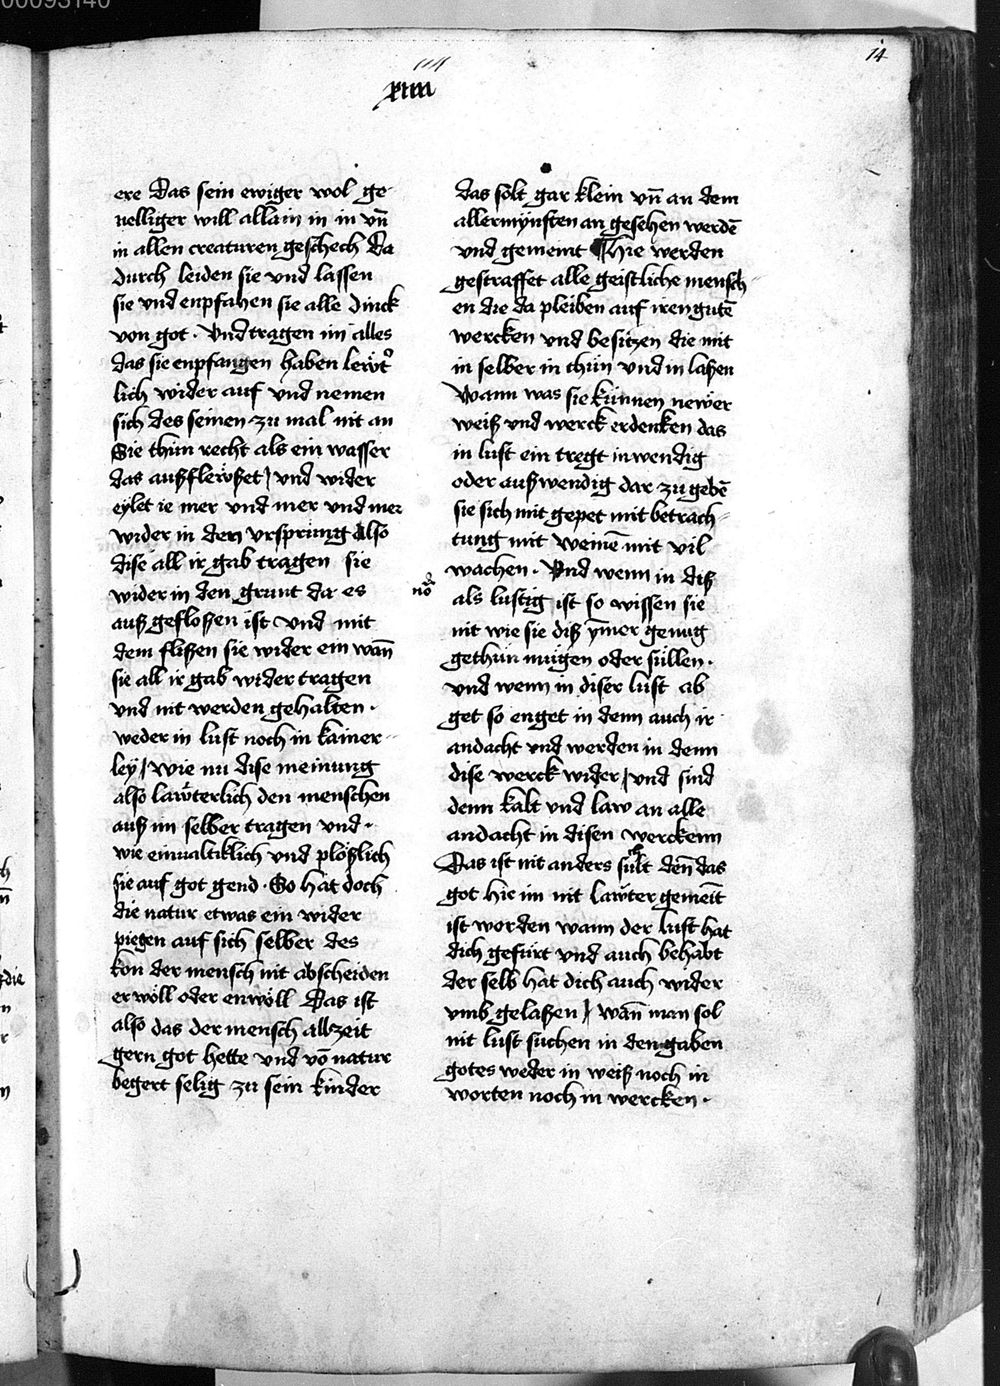 00093140
14
xiiii
ere Das sein ewiger wol ge-
uelliger will allain in in vn̄
in allen creaturen geschech Da
durch leiden sie vnd lassen
sie vnd enpfahen sie alle dinck
von got · Vnd tragen im alles
das sie enpfangen haben lewt᷑
lich wider auf vnd nemen
sich des seinen zu mal nit an
Sie thun recht als ein wasser
das außflewßet / vnd wider
eylet ie mer vnd mer vnd mer
wider in den vrsprung Also
dise all ir gab tragen sie
wider in den grunt da es
auß geflossen ist vnd mit
dem flißen sie wider ein wan̄
sie all ir gab wider tragen
vnd nit werden gehalten ·
weder in lust noch in kainer-
ley / wie nu dise meinung
also lawterlich den menschen
auß im selber tragen vnd ·
wie einualtiklich vnd plößlich
sie auf got gend · So hat doch
die natur etwas ein wider
piegen auf sich selber des
kon der mensch nit abscheiden
er wöll oder enwöll Das ist
also das der mensch allzeit
gern got hette vnd vō natur
begert selig zu sein kinder
das solt gar klein vn̄ an dem
allermynsten an gesehen werdē
vnd gemeint ¶ Hie werden
gestraffet alle geistliche mensch-
en die da pleiben auf iren gutē
wercken vnd besitzen die mit
in selber in thun vnd in laßen
Wann was sie künnen newer
weiß vnd werck erdenken das
in lust ein tregt inwendig
oder außwendig dar zu gebē
sie sich mit gepet mit betrach-
tung mit weinē mit vil
wachen · Vnd wenn in diß
nōa
als lustig ist so wissen sie
nit wie sie diß ymer genug
gethun mügen oder süllen ·
vnd wenn in diser lust ab
get so enget in denn auch ir
andacht vnd werden in denn
dise werck wider / vnd sind
denn kalt vnd law an alle
andacht in disen werckenn
Das ist nit anders schult den̄ das
got hie im nit lawter gemeīt
ist worden wann der lust hat
dich gefürt vnd auch behabt
der selb hat dich auch wider
vmb gelaßen / wan̄ man sol
nit lust suchen in den gaben
gotes weder in weiß noch in
worten noch in wercken ·